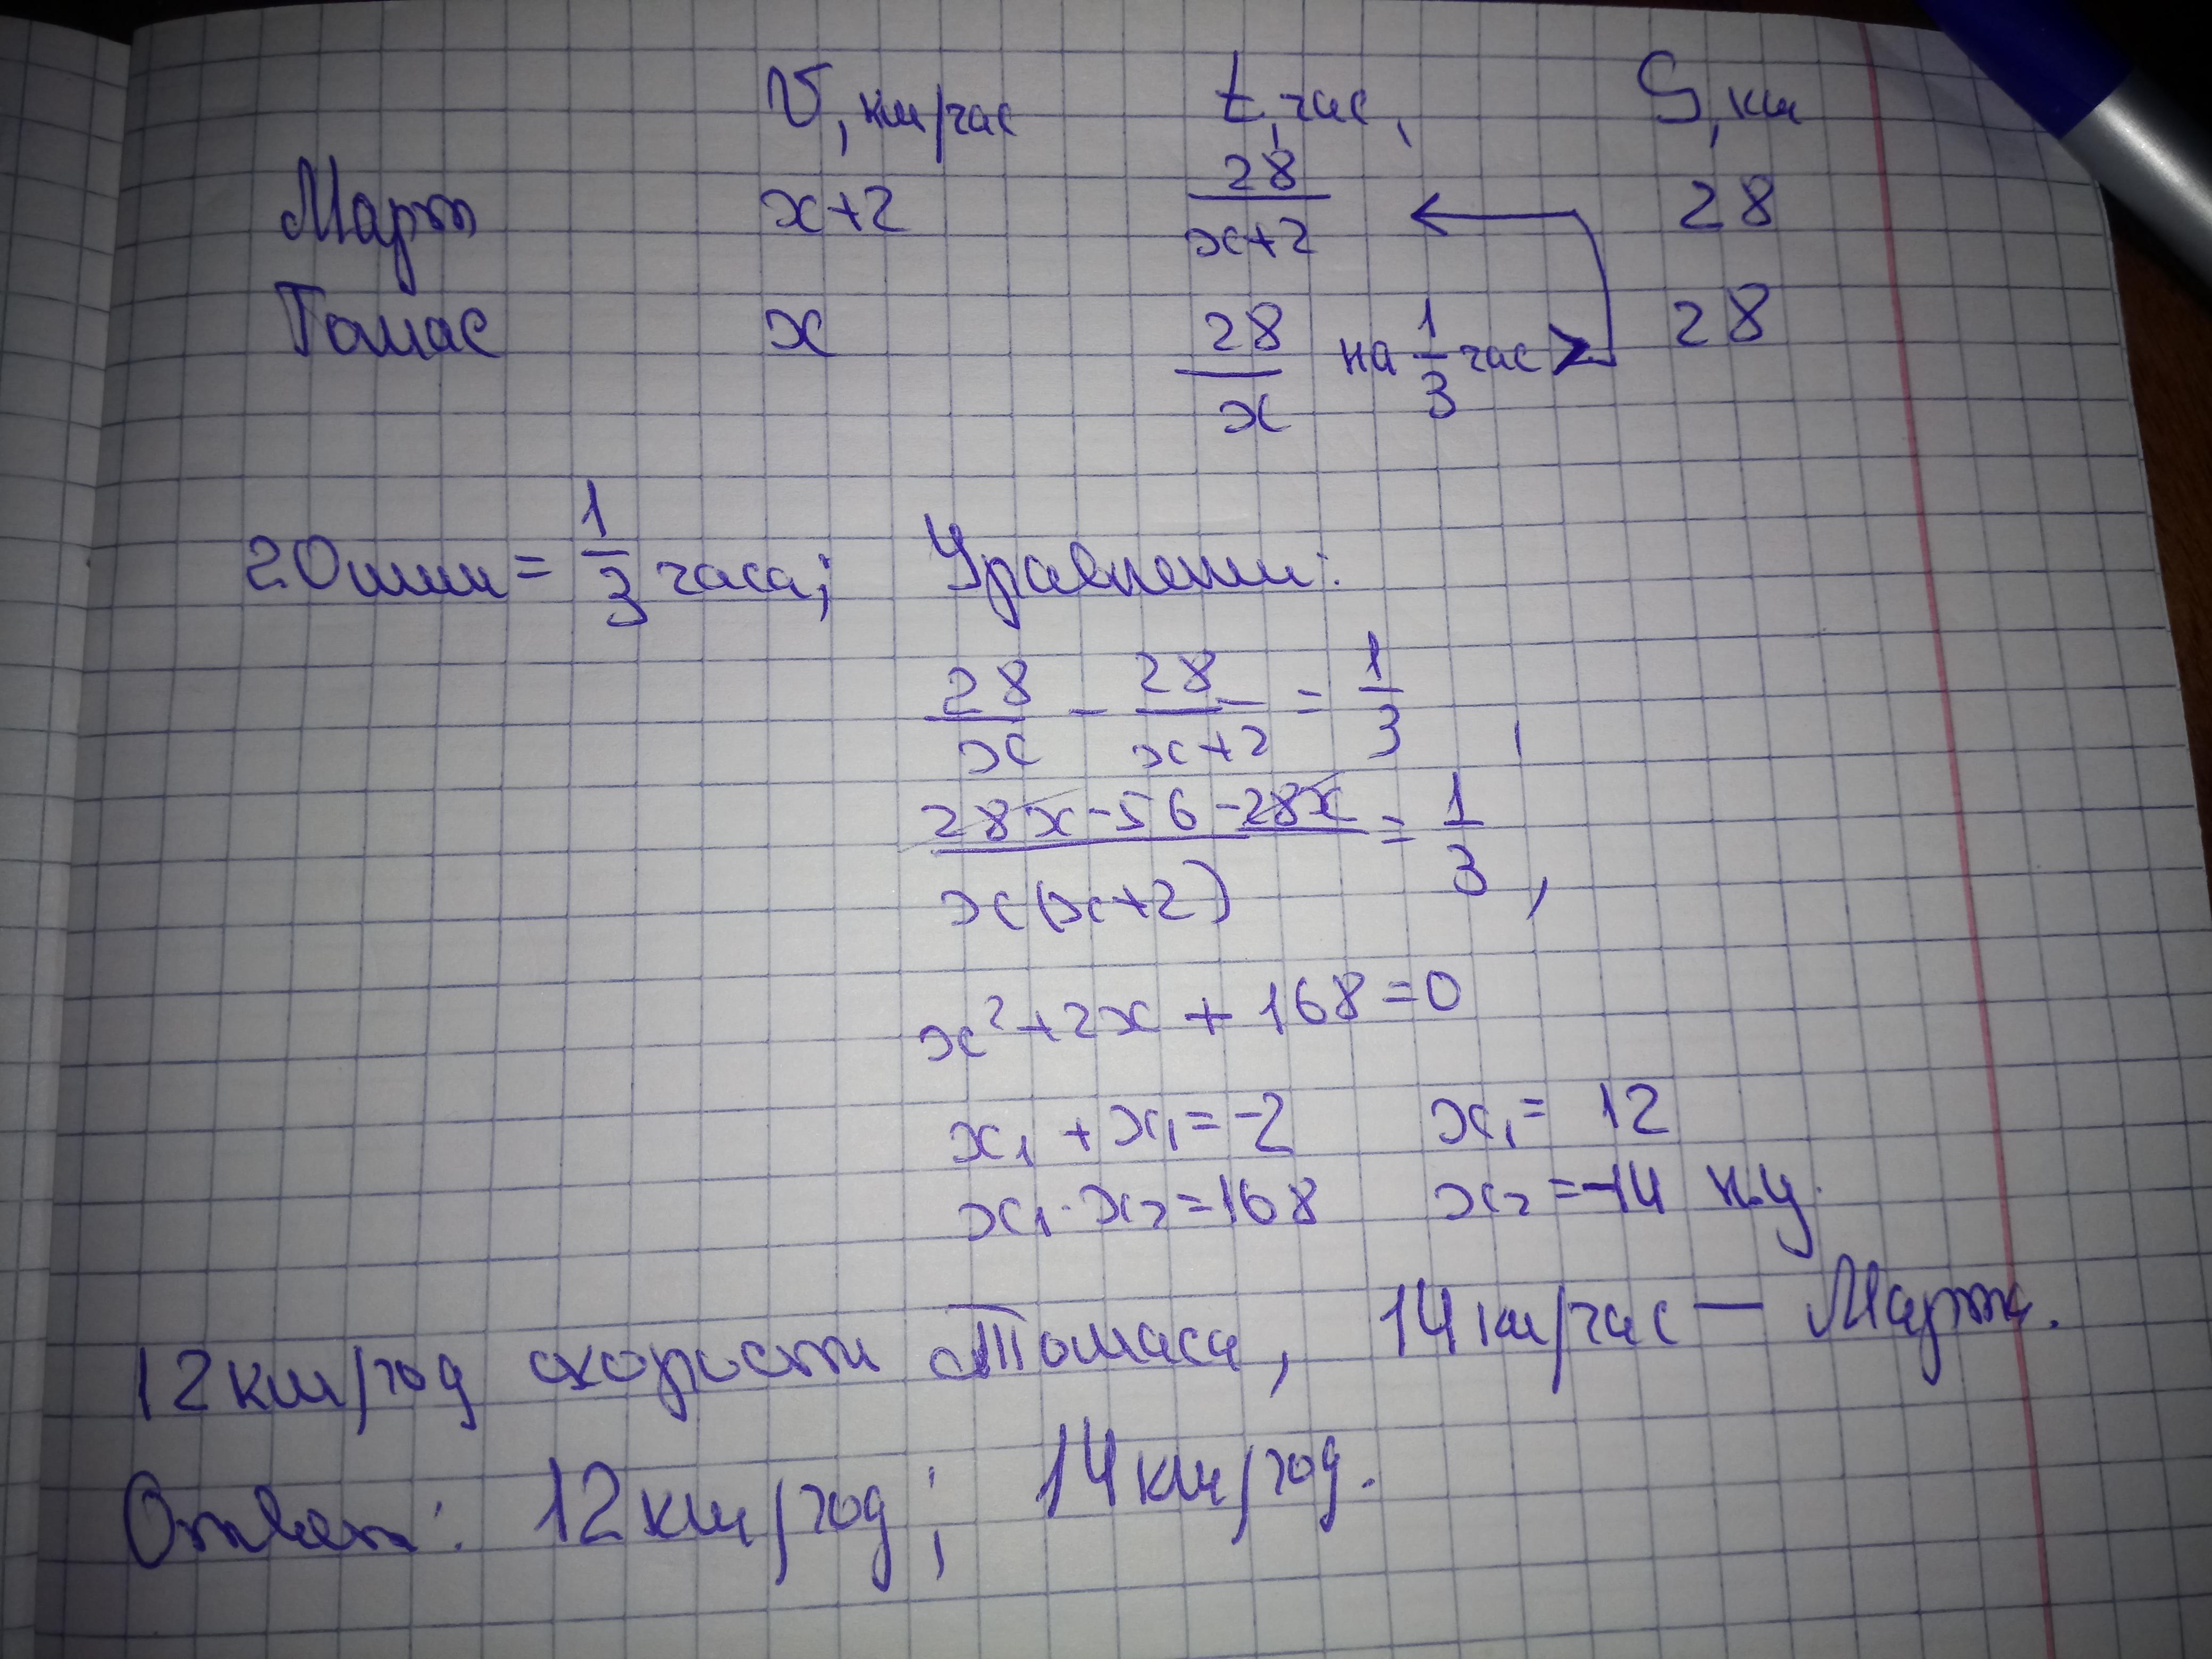 V, км/час t, час, S, км
Март x+2 28/(x+2) 28
Томас x 28/x на 1/3 час > 28
20мин = 1/3 часа; Уравнени:
28/x - 28/(x+2) = 1/3,
(28x-56-28x)/(x(x+2)) = 1/3,
x²+2x+168=0
x₁+x₁=-2 x₁= 12
x₁·x₂=168 x₂=-14 н.у.
12км/год скорости Томаса, 14км/час — Марта.
Ответ: 12км/год; 14км/год.